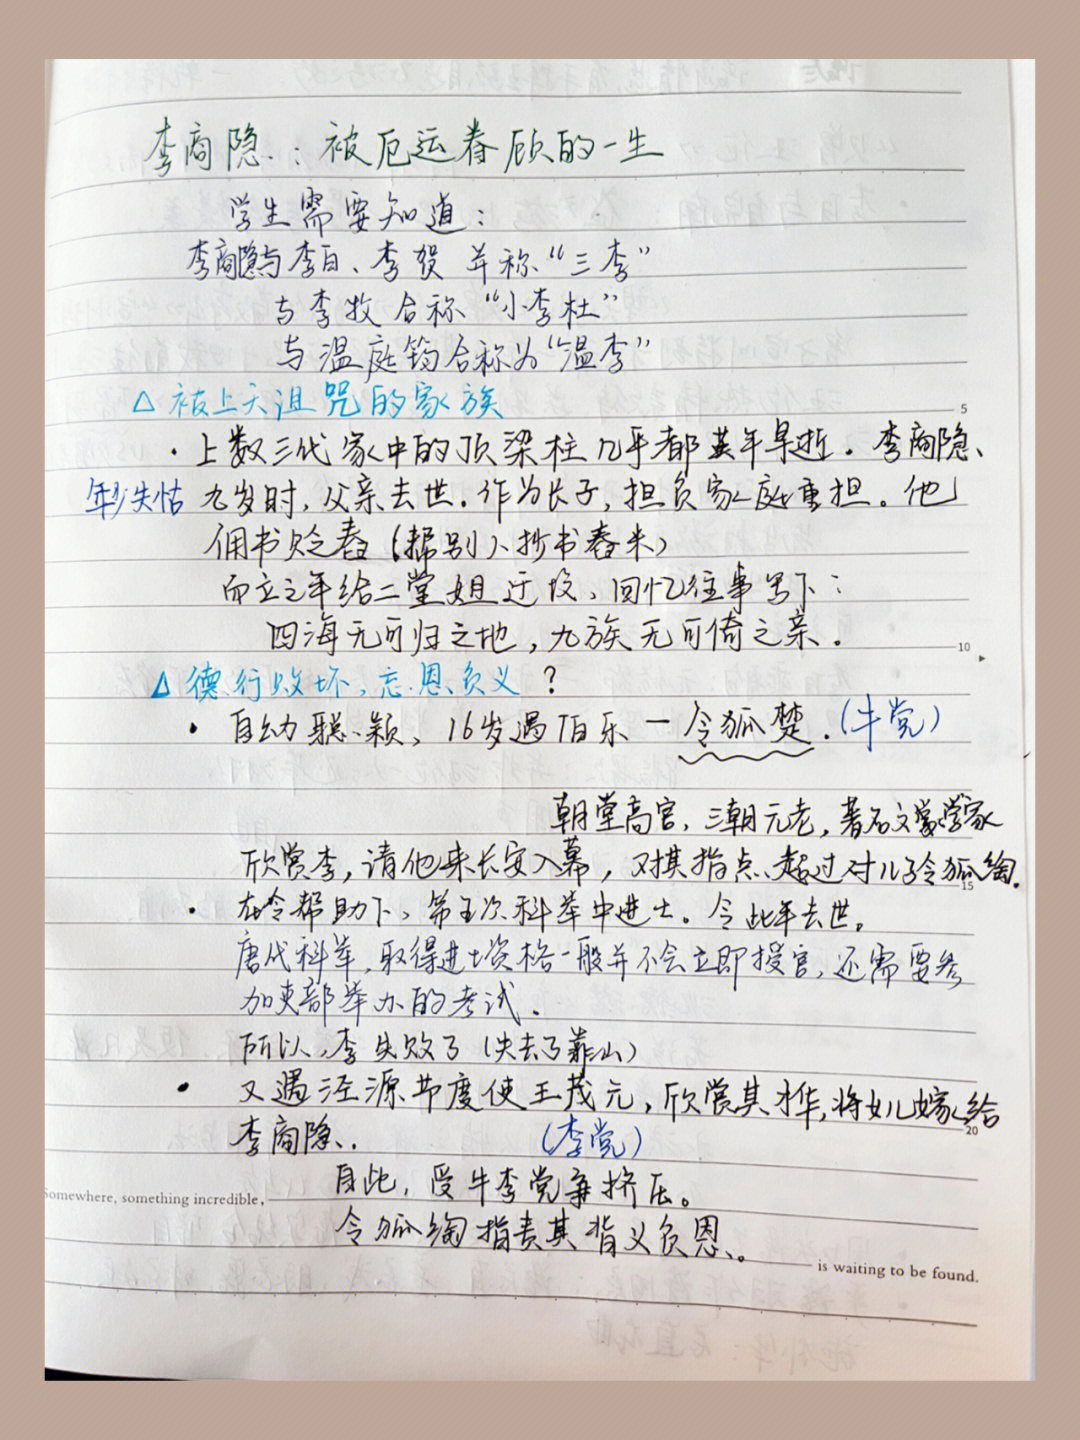 李商隐:被厄运眷顾的一生
学生需要知道:
李商隐与李白、李贺 并称“三李”
与李牧合称“小李杜”
与温庭筠合称为“温李”
△ 被上天诅咒的家族
· 上数三代家中的顶梁柱几乎都英年早逝。李商隐、
年少失怙 九岁时,父亲去世。作为长子,担负家庭重担。他
佣书贩舂(帮别人抄书舂米)
而立之年给二堂姐迁坟、回忆往事写下:
四海无可归之地,九族无可倚之亲.
△ 德行败坏、忘恩负义?
· 自幼聪颖、16岁遇伯乐—令狐楚.(牛党)
朝堂高官,三朝元老,著名文学家
欣赏李,请他来长安入幕,对其指点、超过对儿子令狐绹.
15
· 在令帮助下、第五次科举中进士。令此年去世。
唐代科举,取得进士资格一般并不会立即授官,还需要参
加吏部举办的考试.
所以,李失败了(失去了靠山)
· 又遇泾源节度使王茂元,欣赏其才华,将女儿嫁给
20
李商隐.(李党)
自此,受牛李党争挤压。
Somewhere, something incredible,
令狐绹指责其背义负恩、。
is waiting to be found.
5
10